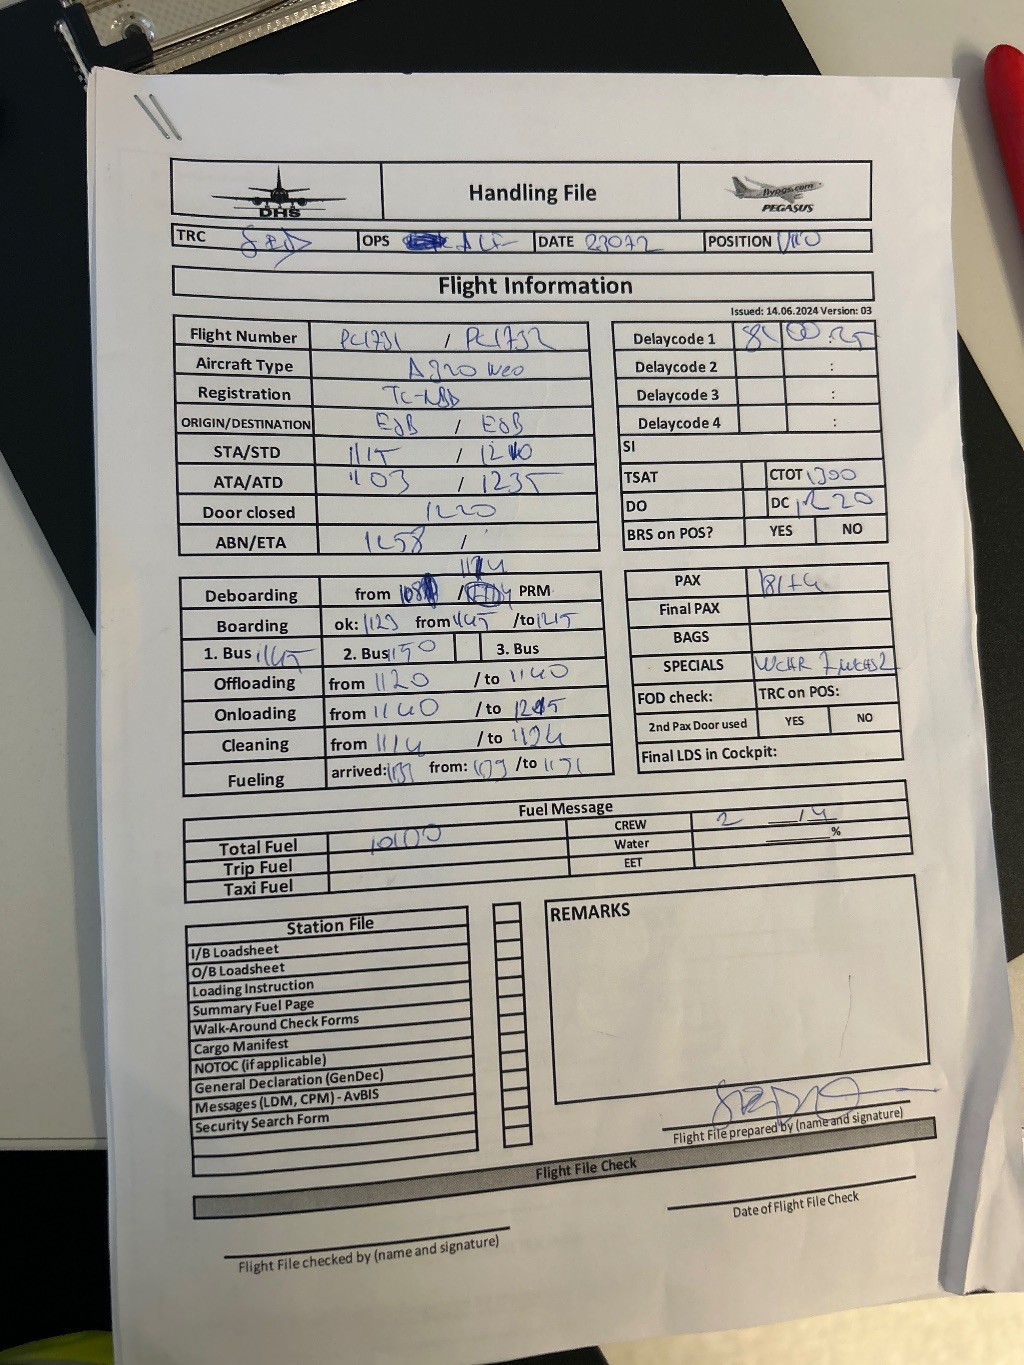 DHS
Handling File
flypgs.com
PEGASUS
TRC OPS DATE POSITION
Flight Information
Issued: 14.06.2024 Version: 03
Flight Number PC1731 / PC1732
Aircraft Type A320 neo
Registration
ORIGIN/DESTINATION /
STA/STD 1115 /
ATA/ATD 1103 / 1235
Door closed 1220
ABN/ETA /
Delaycode 1
Delaycode 2 :
Delaycode 3 :
Delaycode 4 :
SI
TSAT CTOT 1300
DO DC 1220
BRS on POS? YES NO
Deboarding from / PRM
Boarding ok: 1129 from 1145 /to 1215
1. Bus 1145 2. Bus 1150 3. Bus
Offloading from 1120 / to 1140
Onloading from 1140 / to
Cleaning from 1114 / to 1124
Fueling arrived: from: /to
PAX
Final PAX
BAGS
SPECIALS WCHR 7
FOD check: TRC on POS:
2nd Pax Door used YES NO
Final LDS in Cockpit:
Fuel Message
Total Fuel 10100
Trip Fuel
Taxi Fuel
CREW 2 / 4
Water %
EET
Station File
I/B Loadsheet
O/B Loadsheet
Loading Instruction
Summary Fuel Page
Walk-Around Check Forms
Cargo Manifest
NOTOC (if applicable)
General Declaration (GenDec)
Messages (LDM, CPM) - AvBIS
Security Search Form
REMARKS
Flight File prepared by (name and signature)
Flight File Check
Flight File checked by (name and signature)
Date of Flight File Check